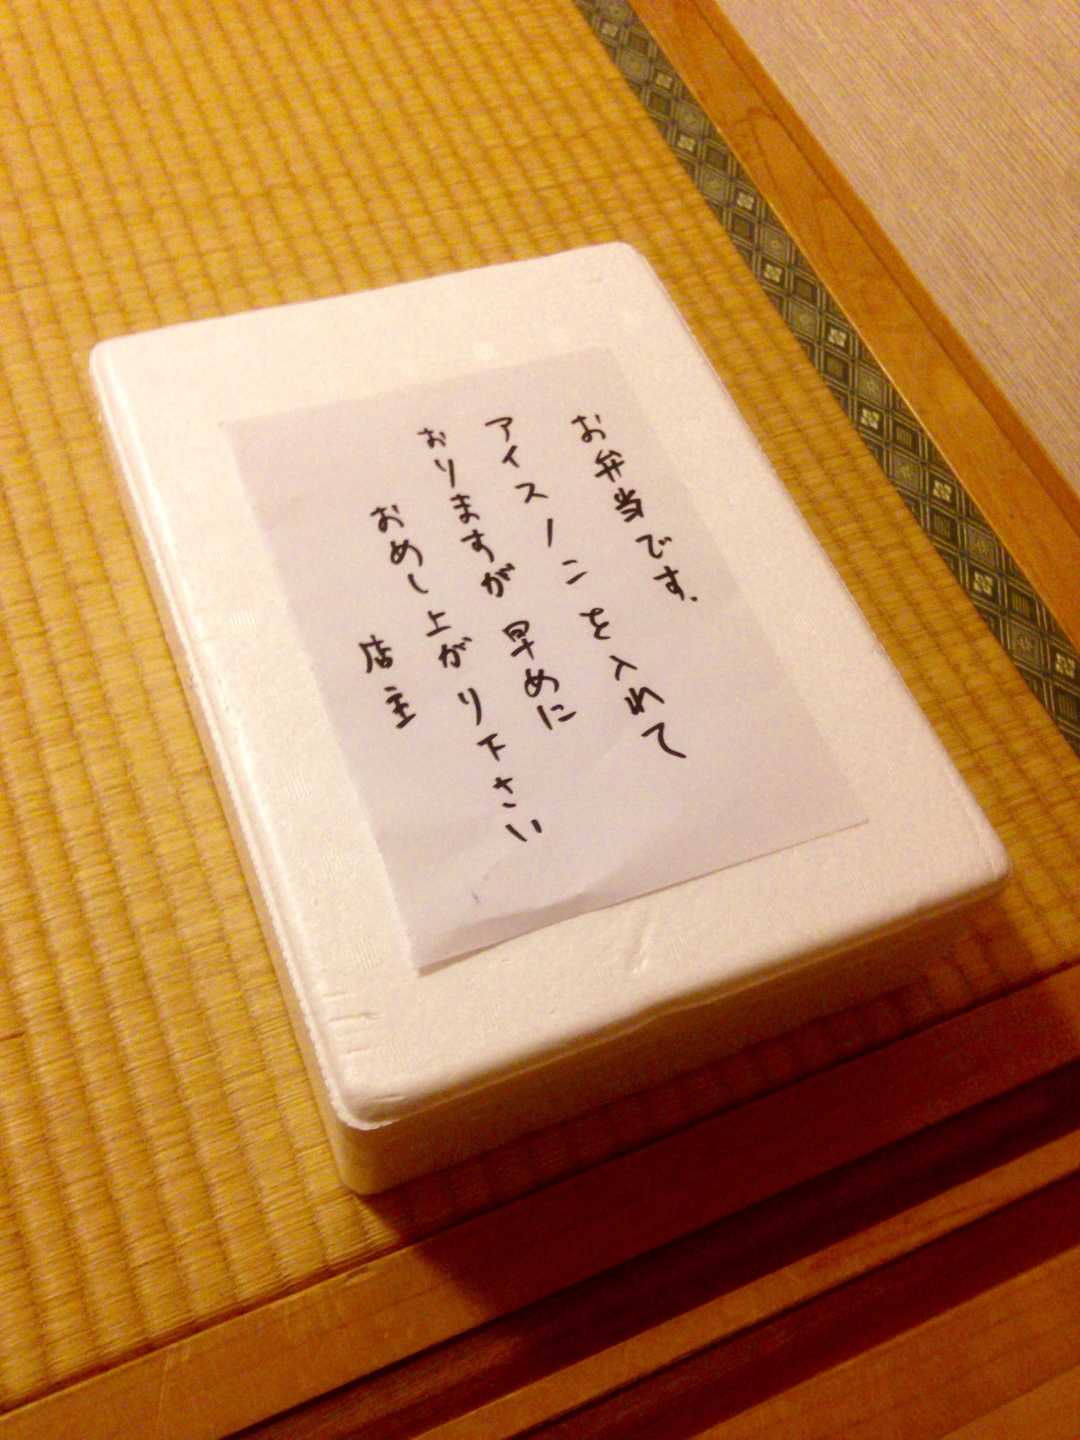 お弁当です.
アイスノンを入れて
おりますが早めに
おめし上がり下さい
店主